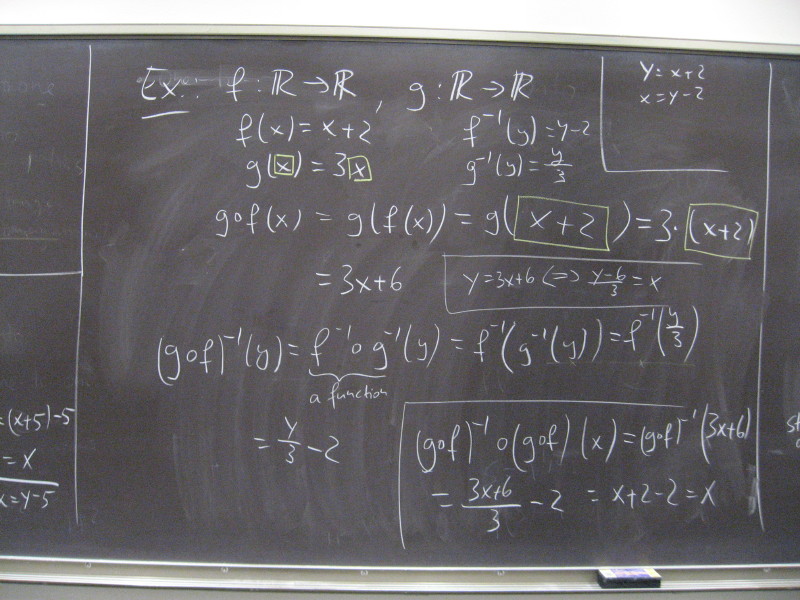 Ex: f : ℝ → ℝ , g : ℝ → ℝ
f(x) = x+2
f⁻¹(y) = y-2
g(x) = 3x
g⁻¹(y) = y/3
y = x+2
x = y-2
gof(x) = g(f(x)) = g( x+2 ) = 3·(x+2)
= 3x+6
y = 3x+6 <=> (y-6)/3 = x
(gof)⁻¹(y) = f⁻¹o g⁻¹(y) = f⁻¹(g⁻¹(y)) = f⁻¹(y/3)
a function
= y/3 - 2
(gof)⁻¹ o (gof) (x) = (gof)⁻¹(3x+6)
= (3x+6)/3 - 2 = x+2-2 = x
= (x+5)-5
= x
x = y-5